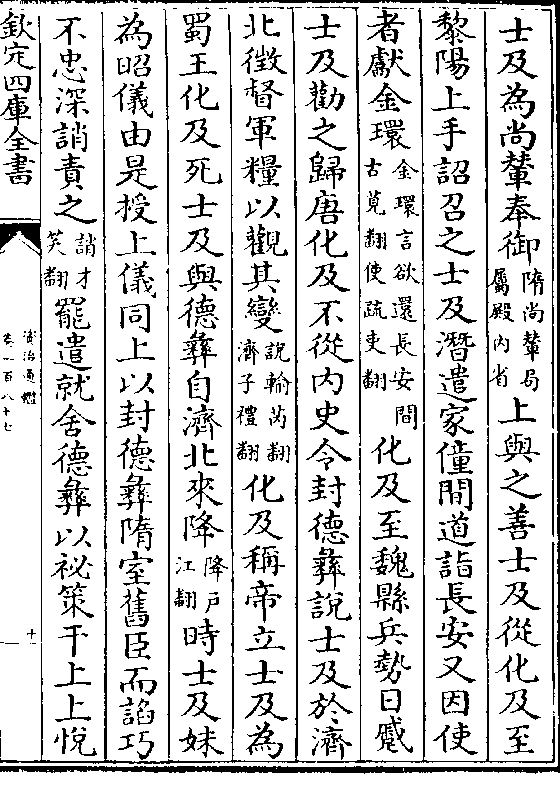 士及為尚輦奉御隋尚輦局屬殿内省上與之善士及從化及至
黎陽上手詔召之士及潛遣家僮間道詣長安又因使
者獻金環金環言欲還長安間古莧翻使疏吏翻化及至魏縣兵勢日蹙
士及勸之歸唐化及不從内史令封德彝說士及於濟
北徵督軍糧以觀其變說輸芮翻濟子禮翻化及稱帝立士及為
蜀王化及死士及與德彝自濟北來降降戸江翻時士及妹
為昭儀由是授上儀同上以封德彝隋室舊臣而諂巧
不忠深誚責之誚才笑翻罷遣就舍德彝以祕策干上上悅
欽定四庫全書
資治通鑑
卷一百八十七
十一